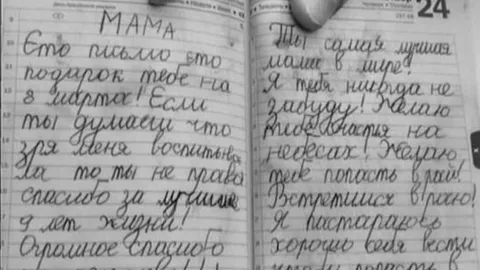 24
МАМА
Єто письмо єто
подарок тебе на
8 марта! Если
ты думаеш что
зря меня воспитыва
ла то ты не права
спасибо за лучшие
9 лет жизни!
Огромное спасибо
Ты самая лучшая
мама в мире!
Я тебя никогда не
забуду! Желаю
тебе счастья на
небесах! Желаю
тебе попасть в рай!
Встретимся в раю!
Я постараюсь
хорошо себя вести
попасть в